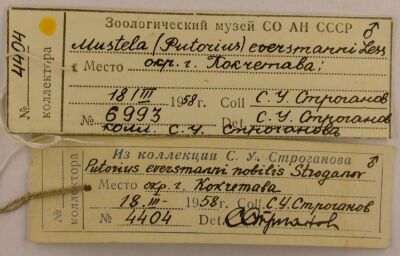 Зоологический музей СО АН СССР ♂
№ 4404
коллектора
Mustela (Putorius) eversmanni Less
Место окр. г. Кокчетава;
18/III 1958г. Coll С. У. Строганов
№ 6993 Det. С. У. Строганов
колл. С. У. Строганова
Из коллекции С. У. Строганова ♂
№
коллектора
Putorius eversmanni nobilis Stroganov
Место окр. г. Кокчетава
18.III- 1958г. Coll. С.У. Строганов
№ 4404 Det. С. Строганов